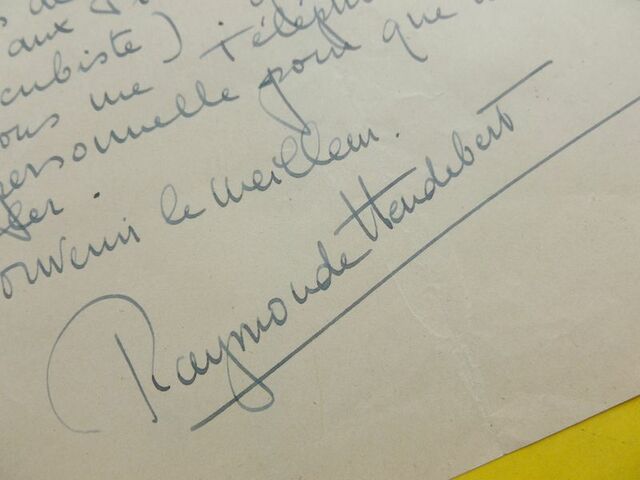 aux
cubiste). Téléph
ous me
personnelle pour que
ger.
ouvenir le meilleur.
Raymonde Heudebert